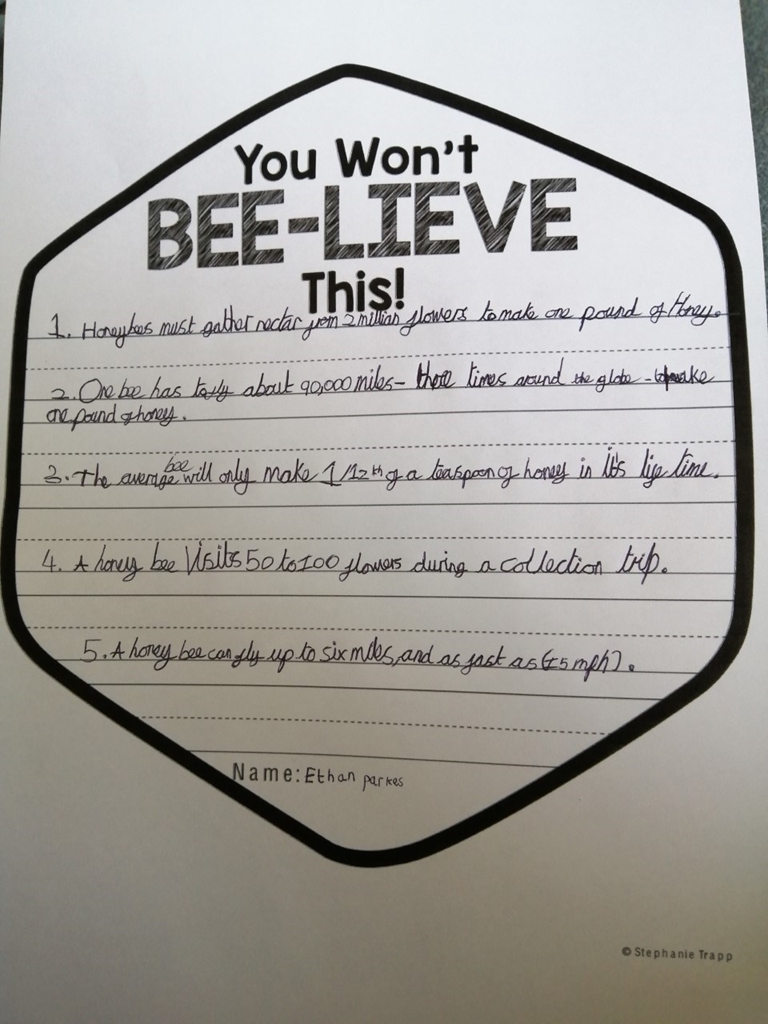 You Won't
BEE-LIEVE
This!
1. Honeybees must gather nectar from 2 million flowers to make one pound of Honey.
2. One bee has to fly about 90,000 miles- three times around the globe - to make
one pound of honey.
bee
3. The average will only make 1/12th of a teaspoon of honey in it's life time.
4. A honey bee Visits 50 to 100 flowers during a collection trip.
5. A honey bee can fly up to six miles, and as fast as (15 mph).
Name: Ethan parkes
© Stephanie Trapp